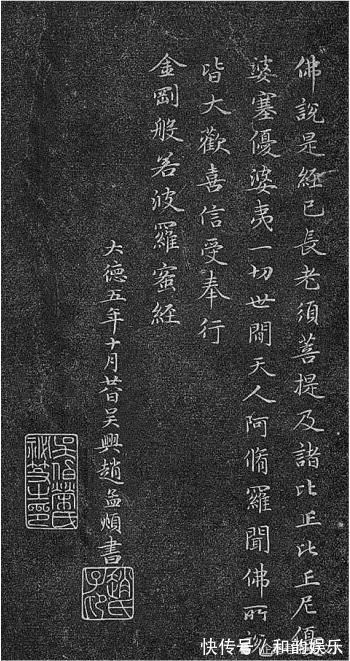 佛說是經已長老須菩提及諸比丘比丘尼優
婆塞優婆夷一切世間天人阿脩羅聞佛所說
皆大歡喜信受奉行
金剛般若波羅蜜經
大德五年十月廿日吳興趙孟頫書
趙氏子昂
吳伯榮氏秘笈之印
快传号/和韵娱乐